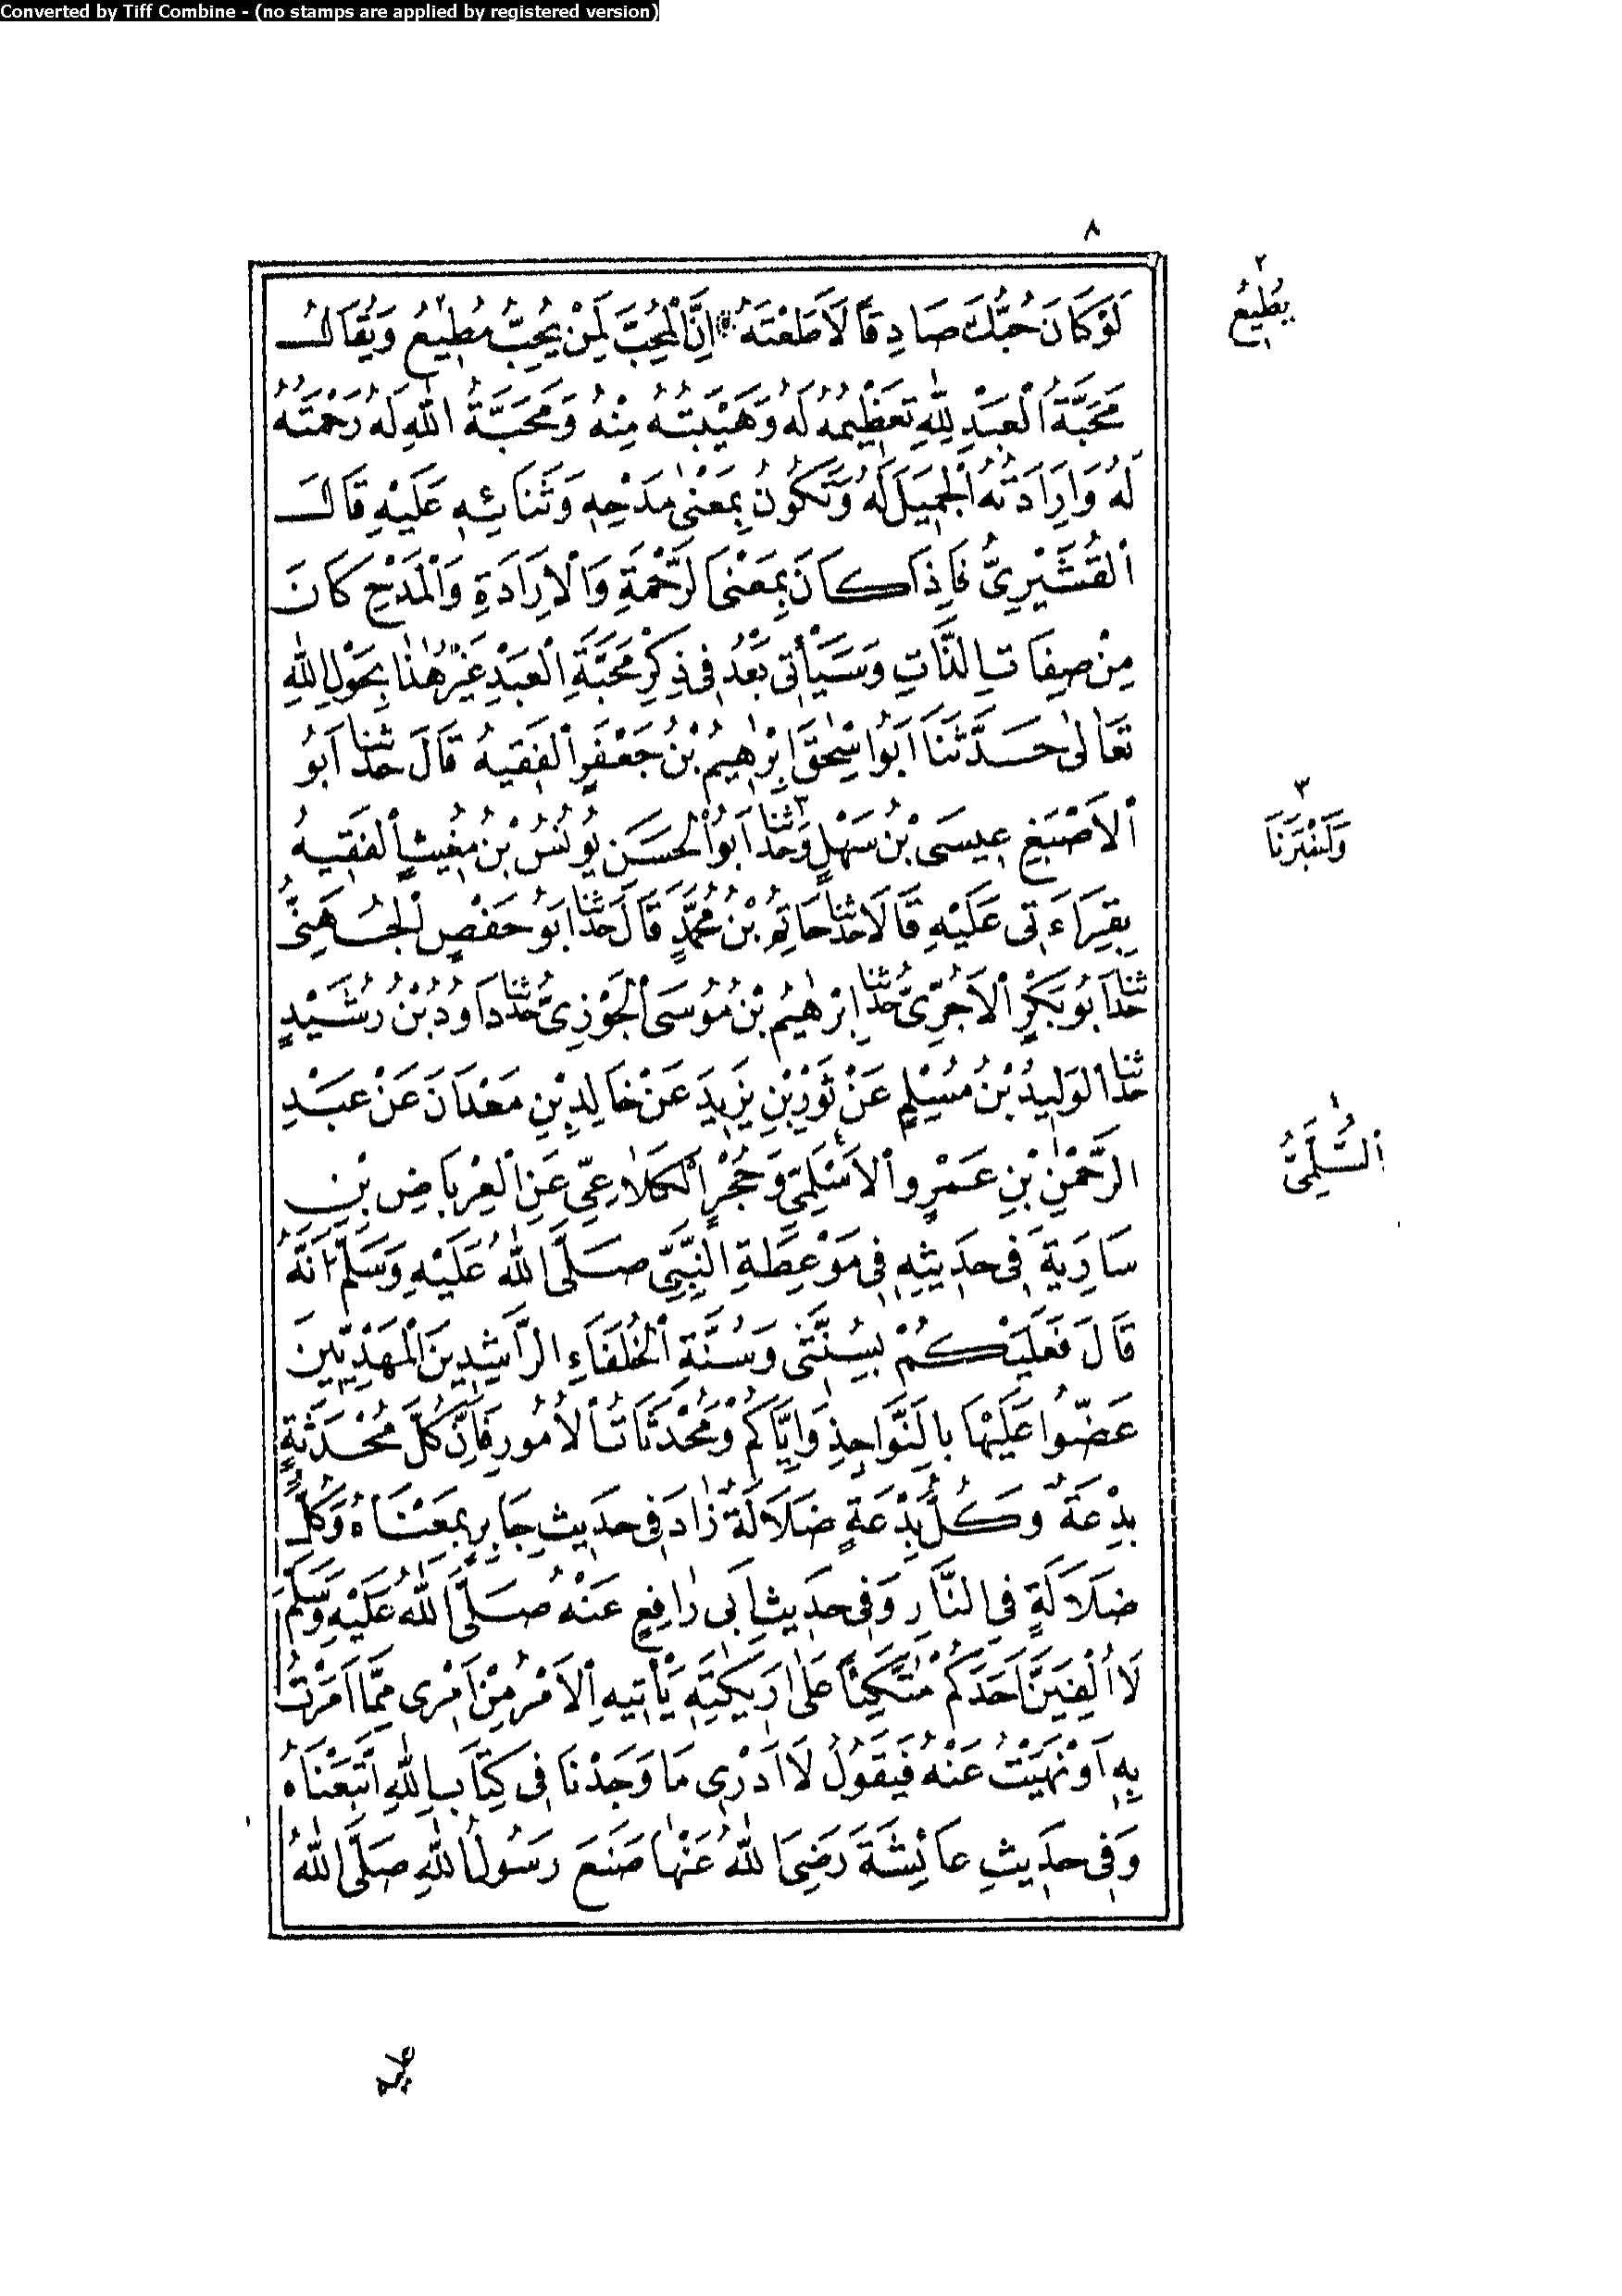 Converted by Tiff Combine - (no stamps are applied by registered version)
٨
لَوْ كَانَ حُبُّكَ صَادِقًا لَاَطَعْتَهُ * اِنَّ الْمُحِبَّ لِمَنْ يُحِبُّ مُطِيعُ ٢ وَيُقَالُ
مَحَبَّةُ الْعَبْدِ لِلّٰهِ تَعْظِيمُهُ لَهُ وَهَيْبَتُهُ مِنْهُ وَمَحَبَّةُ اللّٰهِ لَهُ رَحْمَتُهُ
لَهُ وَاِرَادَتُهُ الْجَمِيلَ لَهُ وَتَكُونُ بِمَعْنٰى مَدْحِهِ وَثَنَائِهِ عَلَيْهِ قَالَ
الْقُشَيْرِىُّ فَاِذَا كَانَ بِمَعْنَى الرَّحْمَةِ وَالْاِرَادَةِ وَالْمَدْحِ كَانَ
مِنْ صِفَاتِ الذَّاتِ وَسَيَأْتِى بَعْدُ فِى ذِكْرِ مَحَبَّةِ الْعَبْدِ غَيْرُ هٰذَا بِحَوْلِ اللّٰهِ
تَعَالٰى حَدَّثَنَا اَبُو اِسْحٰقَ اِبْرٰهِيمُ بْنُ جَعْفَرٍ الْفَقِيهُ قَالَ حَدَّثَنَا اَبُو
الْاَصْبَغِ عِيسَى بْنُ سَهْلٍ وَحَدَّثَنَا ٣ اَبُو الْحَسَنِ يُونُسُ بْنُ مُغِيثٍ الْفَقِيهُ
بِقِرَاءَتِى عَلَيْهِ قَالَا حَدَّثَنَا حَاتِمُ بْنُ مُحَمَّدٍ قَالَ حَدَّثَنَا اَبُو حَفْصٍ الْجُهَنِىُّ
حَدَّثَنَا اَبُو بَكْرٍ الْاٰجُرِّىُّ حَدَّثَنَا اِبْرٰهِيمُ بْنُ مُوسَى الْجَوْزِىُّ حَدَّثَنَا دَاوُدُ بْنُ رُشَيْدٍ
حَدَّثَنَا الْوَلِيدُ بْنُ مُسْلِمٍ عَنْ ثَوْرِ بْنِ يَزِيدَ عَنْ خَالِدِ بْنِ مَعْدَانَ عَنْ عَبْدِ
الرَّحْمٰنِ بْنِ عَمْرٍو الْاَسْلَمِىِّ وَحُجْرٍ الْكَلَاعِىِّ عَنِ الْعِرْبَاضِ بْنِ
سَارِيَةَ فِى حَدِيثِهِ فِى مَوْعِظَةِ النَّبِىِّ صَلَّى اللّٰهُ عَلَيْهِ وَسَلَّمَ اَنَّهُ
قَالَ فَعَلَيْكُمْ بِسُنَّتِى وَسُنَّةِ الْخُلَفَاءِ الرَّاشِدِينَ الْمَهْدِيِّينَ
عَضُّوا عَلَيْهَا بِالنَّوَاجِذِ وَاِيَّاكُمْ وَمُحْدَثَاتِ الْاُمُورِ فَاِنَّ كُلَّ مُحْدَثَةٍ
بِدْعَةٌ وَكُلُّ بِدْعَةٍ ضَلَالَةٌ زَادَ فِى حَدِيثِ جَابِرٍ بِمَعْنَاهُ وَكُلُّ
ضَلَالَةٍ فِى النَّارِ وَفِى حَدِيثِ اَبِى رَافِعٍ عَنْهُ صَلَّى اللّٰهُ عَلَيْهِ وَسَلَّمَ
لَا اُلْفِيَنَّ اَحَدَكُمْ مُتَّكِئًا عَلٰى اَرِيكَتِهِ يَأْتِيهِ الْاَمْرُ مِنْ اَمْرِى مِمَّا اَمَرْتُ
بِهِ اَوْ نَهَيْتُ عَنْهُ فَيَقُولُ لَا اَدْرِى مَا وَجَدْنَا فِى كِتَابِ اللّٰهِ اتَّبَعْنَاهُ
وَفِى حَدِيثِ عَائِشَةَ رَضِىَ اللّٰهُ عَنْهَا صَنَعَ رَسُولُ اللّٰهِ صَلَّى اللّٰهُ
٢
يُطِيعُ
٣
وَاَخْبَرَنَا
السُّلَمِىُّ
عليه